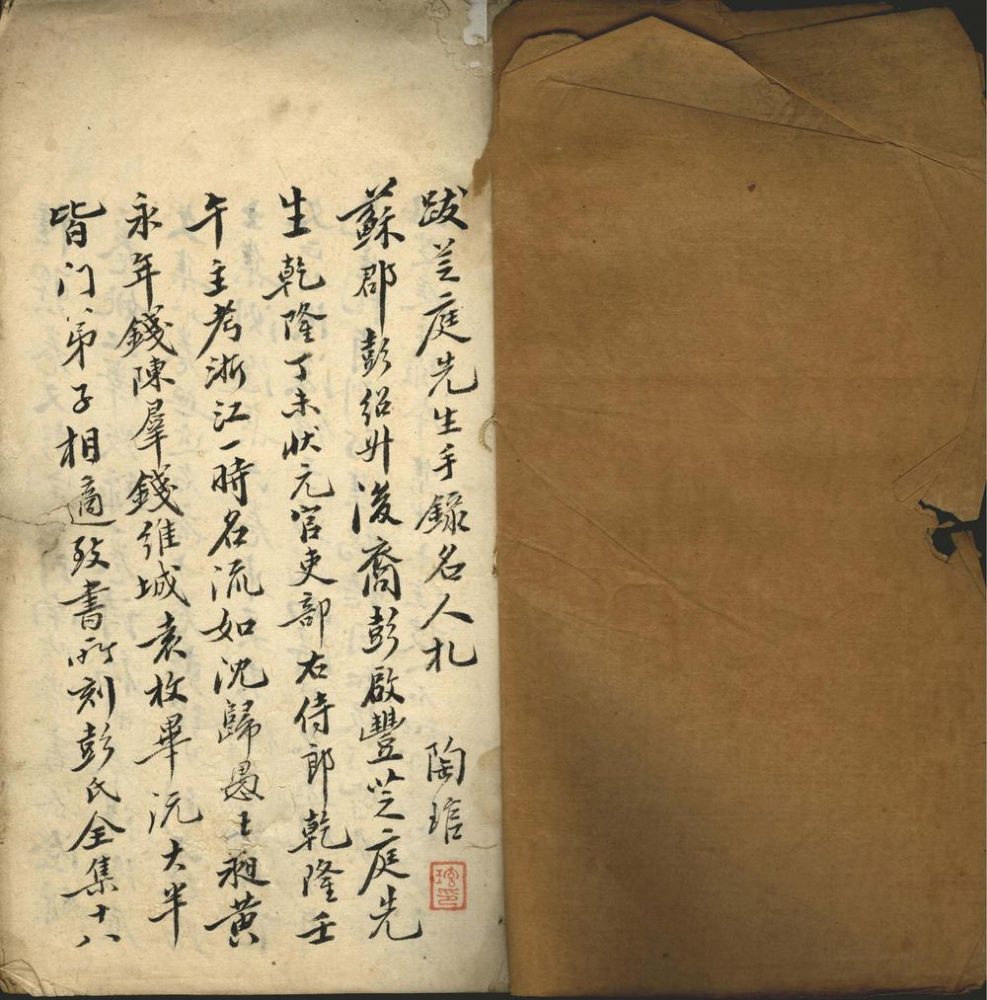 跋芝庭先生手錄名人札　陶琯
蘇郡彭紹升後裔彭啟豐芝庭先
生乾隆丁未狀元官吏部右侍郎乾隆壬
午主考浙江一時名流如沈歸愚王昶黃
永年錢陳羣錢維城袁枚畢沅大半
皆门弟子相適致書所刻彭氏全集十八